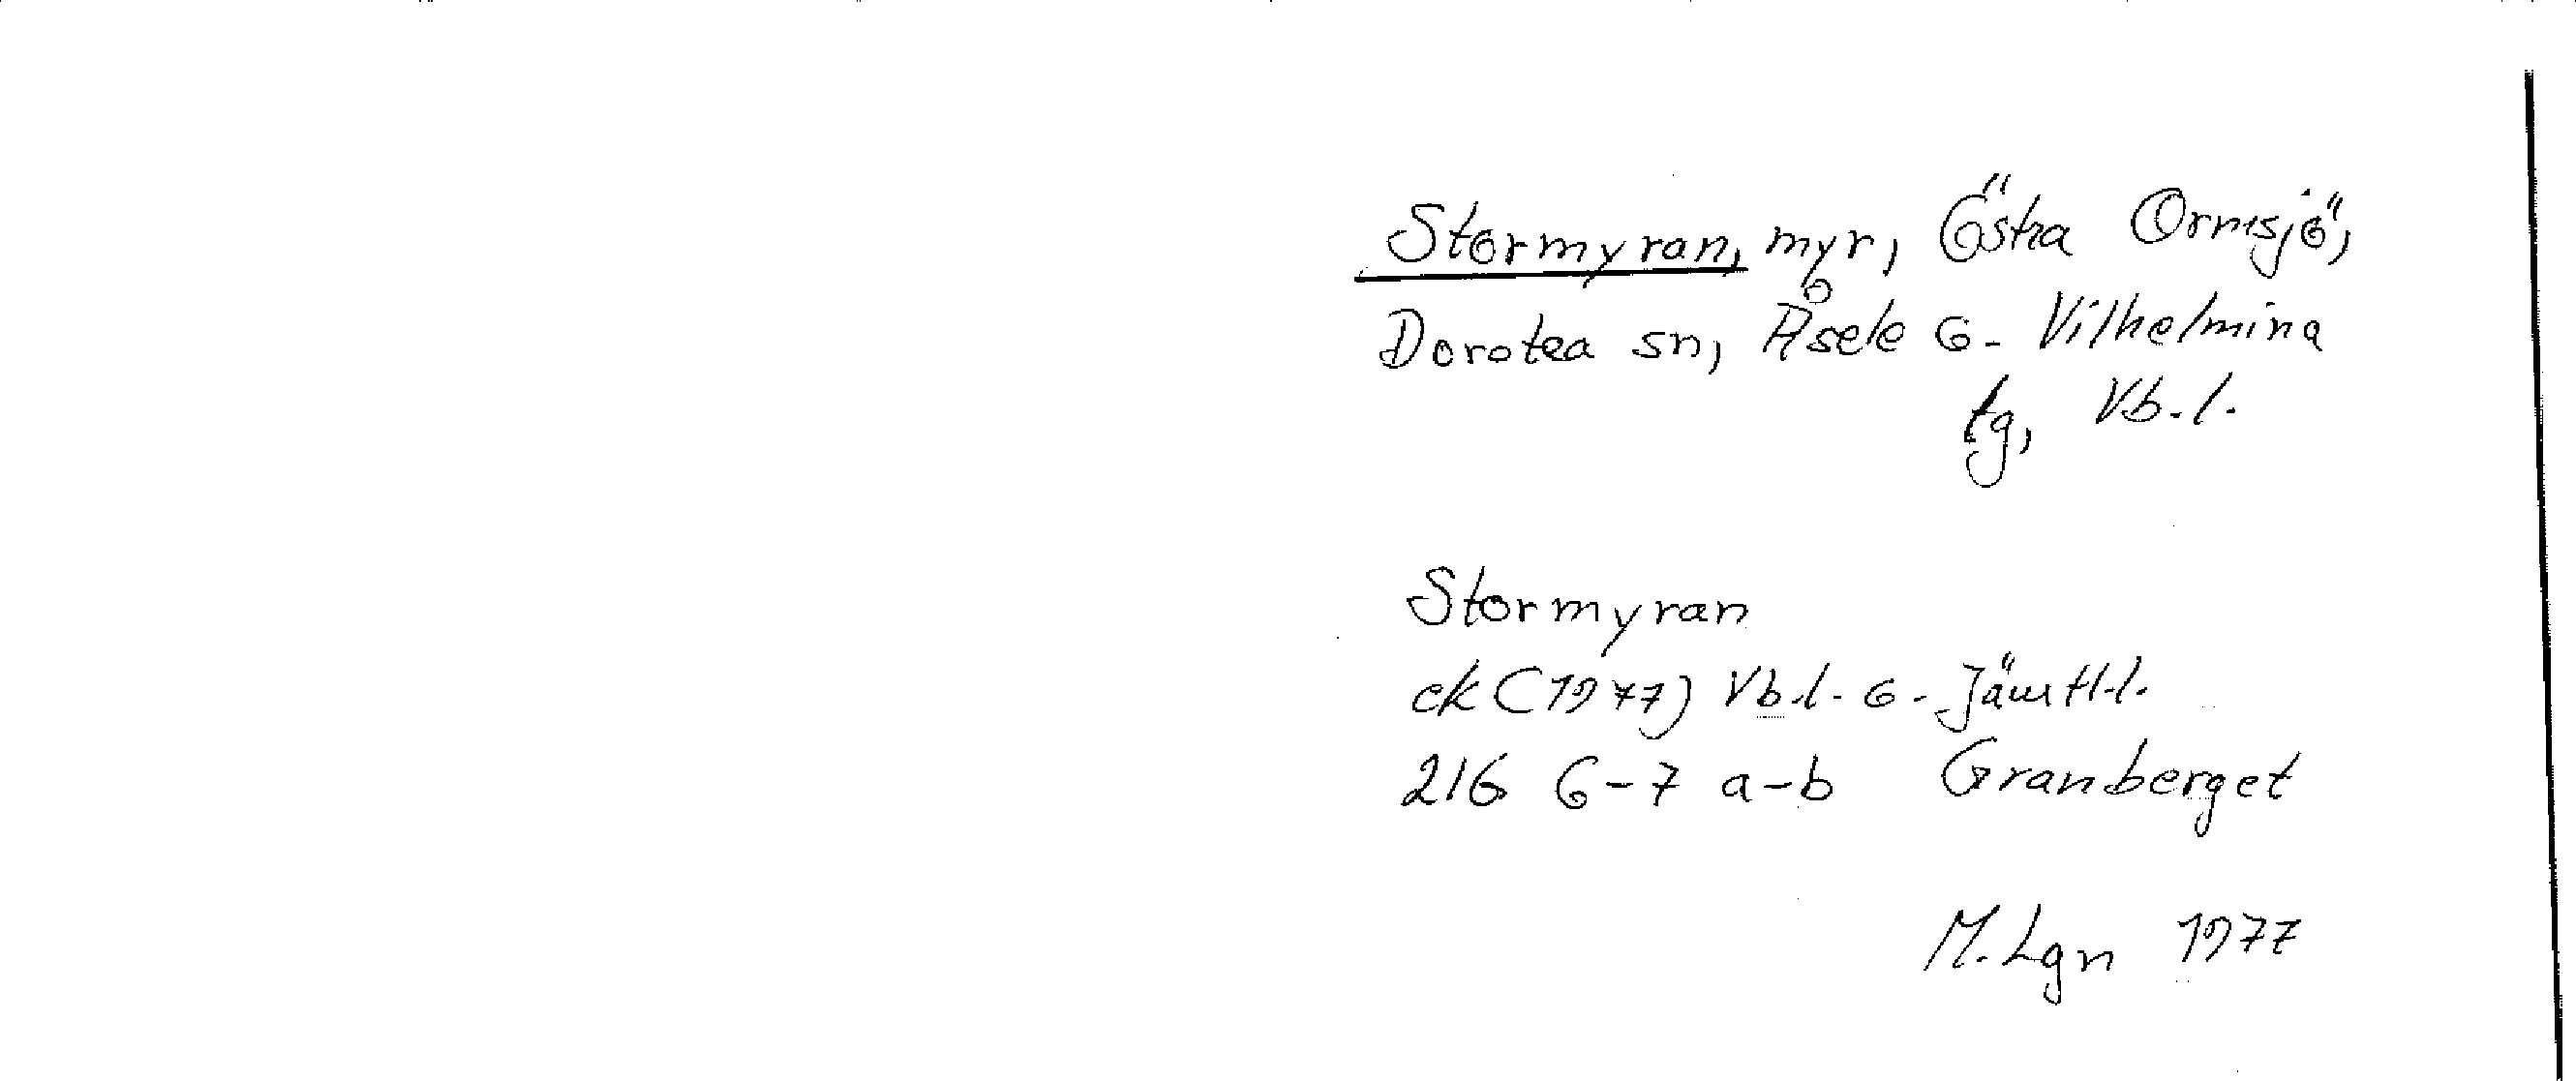 Stormyran, myr, Östra Ormsjö,
Dorotea sn, Åsele o. Vilhelmina
tg, Vb. l.
Stormyran
ek (1977) Vb.l. o. Jämtl.l.
21G 6-7 a-b Granberget
M. Lgn 1977